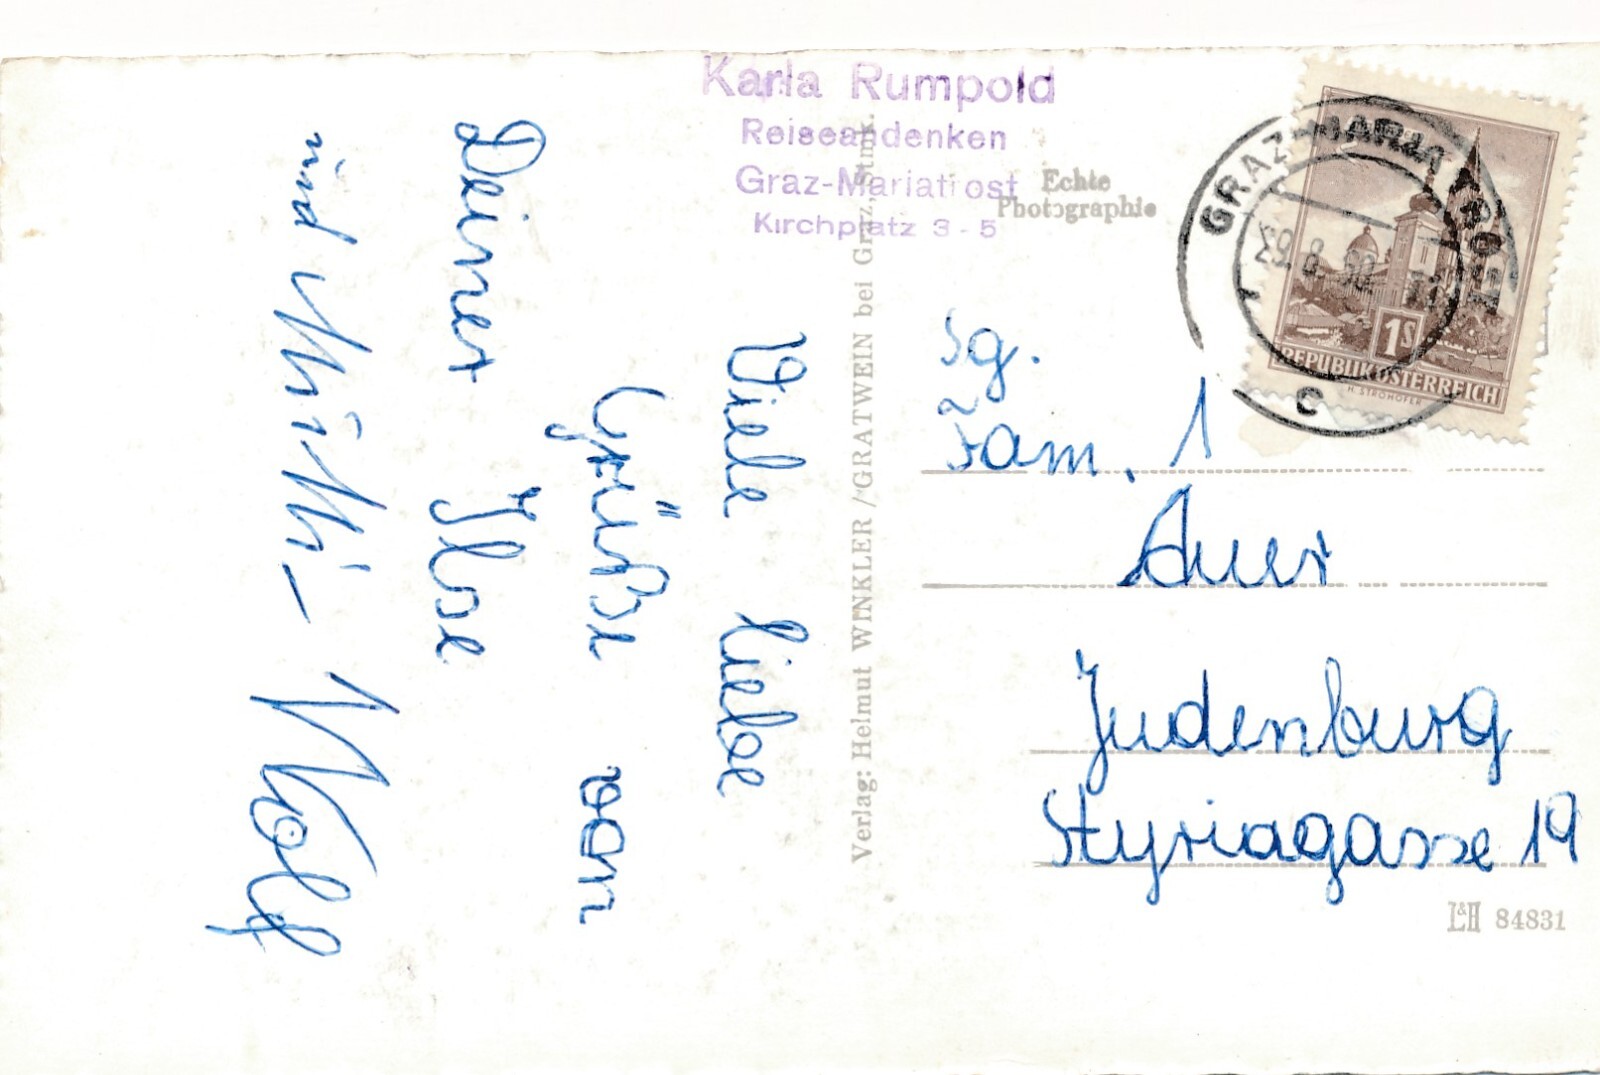 Karla Rumpold
Reiseandenken
Graz-Mariatrost
Kirchplatz 3-5
Echte
Photographie
GRAZ-MARIATROST
c
1S
REPUBLIK ÖSTERREICH
H. STROHOFER
Viele liebe
Grüße von
Deiner Ilse
und Mutti - Wolf
Verlag: Helmut WINKLER / GRATWEIN bei Graz, Stmk.
Sg.
Fam. 1
Auer
Judenburg
Styriagasse 19
L&H 84831